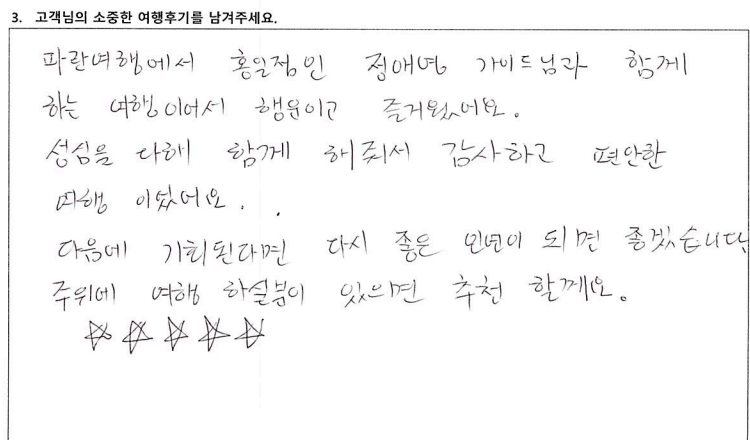 3. 고객님의 소중한 여행후기를 남겨주세요.
파란여행에서 홍일점인 정애영 가이드님과 함께
하는 여행이어서 행운이고 즐거웠어요.
성심을 다해 함께 해줘서 감사하고 편안한
여행 이었어요. .
다음에 기회된다면 다시 좋은 인연이 되면 좋겠습니다
주위에 여행 하실분이 있으면 추천 할께요.
☆☆☆☆☆